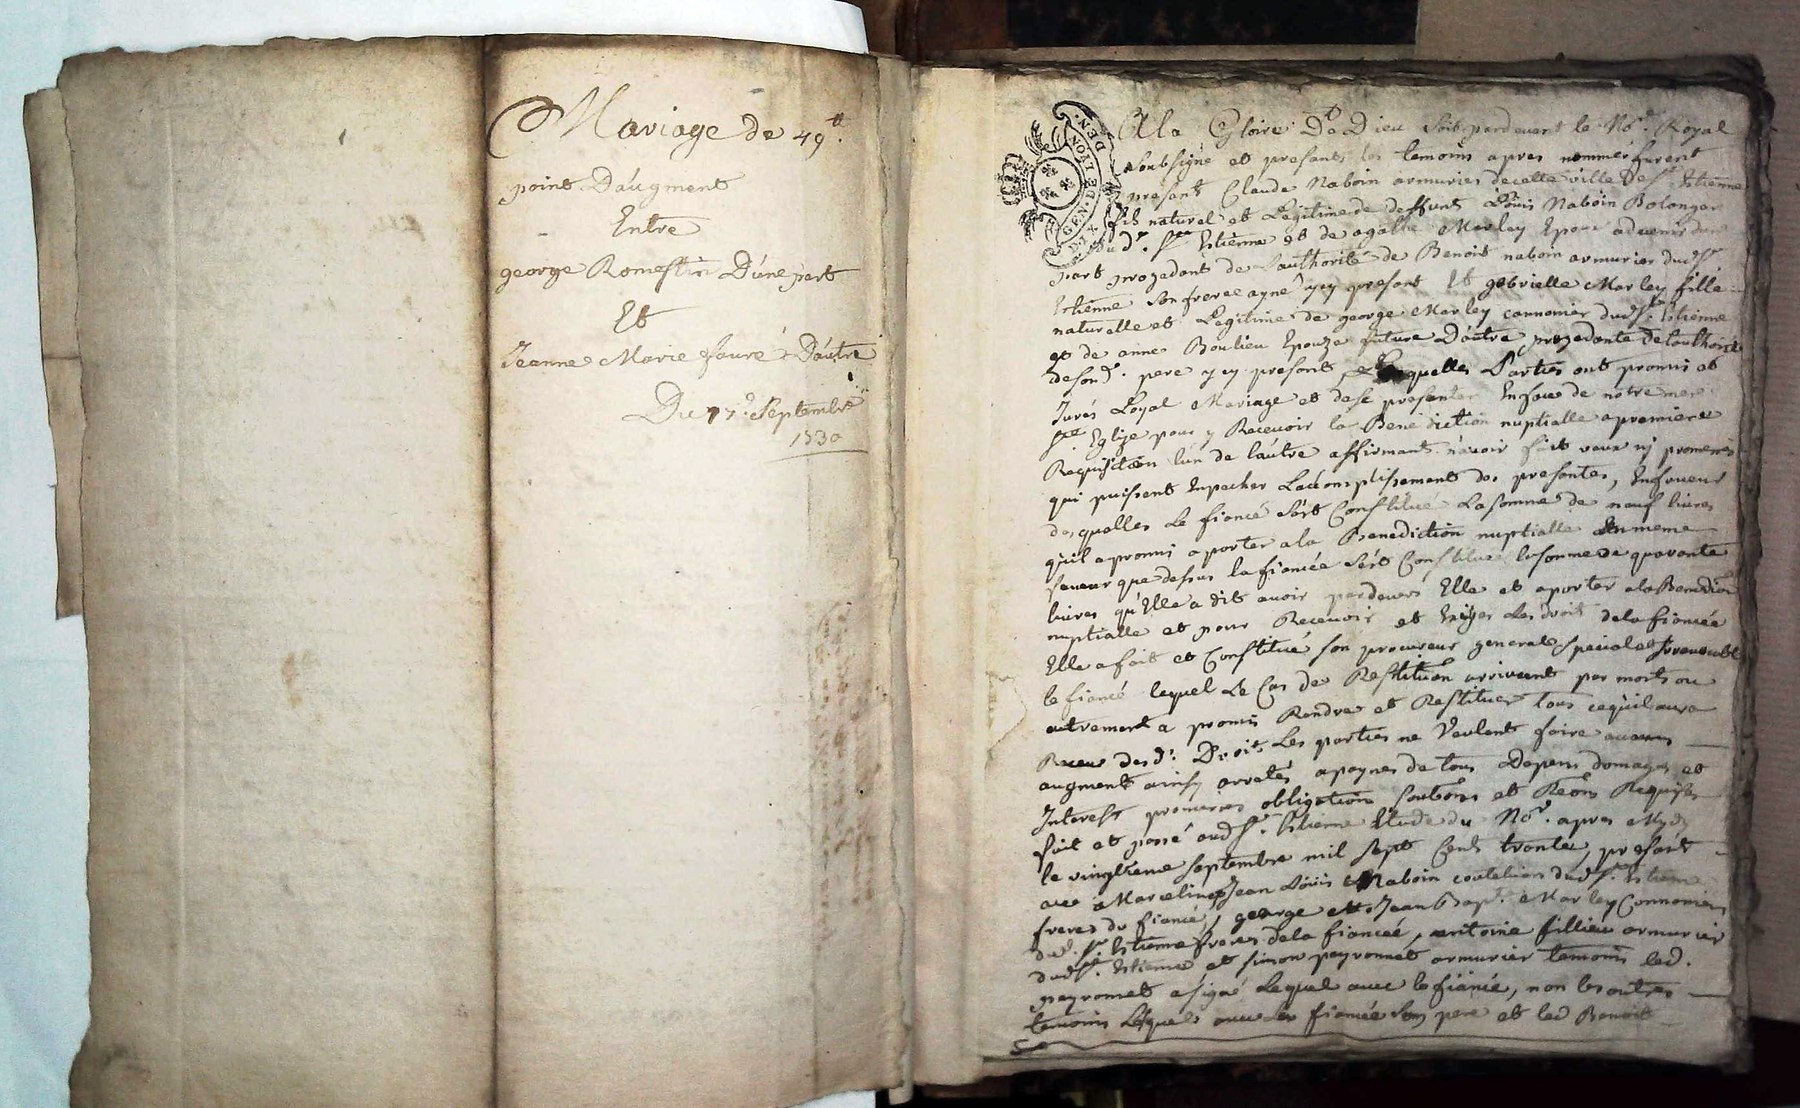 Mariage de 49ᵗᵗ.
point D'augment
Entre
george Romestin D'une part
Et
Jeanne Marie faure D'autre
Du 17ᵉ. Septembre
1730
GEN. DE LYON
DIX DEN.
A la Gloire De Dieu soit pardevant le Noʳᵉ. Royal
soubsigné et presants les temoins apres nommés furent
présant Claude Naboin armurier decette ville de Sᵗ. Estienne
fils naturel et Legitime de deffunt Loüis Naboin Bolanger
dud. Sᵗ Estienne et de agathe Marley Epoux advenir d'une
part prozedant de L'authorité de Benoit naboin armurier dud Sᵗ
Estienne son frere ayné ycy present Et gabrielle Marley fille
naturelle et Legitime de george Marley cannonier dud Sᵗ. Estienne
et de anne Boulieu Epouze future D'autre prozedante de l'authorité
desond. pere ycy present, Lesquelles Parties ont promis et
Jurés Loyal Mariage et dese presenter En face de notre mere
Sᵗᵉ Eglize pour y Recevoir la Benediction nuptialle a premiere
Requisition l'un de l'autre affirmant n'avoir fait vœux ny promesses
qui puissent Enpecher L'accomplissement des presantes, En faveur
desquelles Le fiancé s'est Constitué La somme de neuf livres
qu'il a promis aporter a la Benediction nuptialle En meme
faveur que dessus la fiancée s'est Constituée la somme de quarante
livres qu'Elle a dit avoir pardevers Elle et aporter a la Benediction
nuptialle et pour Recevoir et Exiger Les droits de la fiancée
Elle a fait et Constitué son procureur general special et Irrevocable
le fiancé lequel Le Cas de Restitution arrivant par morts ou
autrement a promis Rendre et Restituer tous cequ'il aura
Receu desd. Droits Les parties ne Veulent faire aucuns
augment ainsy arretés a paynes de tous depens domages et
Interest promesses obligations soutions et Reons Requises
fait et passé aud Sᵗ. Estienne Etude du Noʳᵉ. apres Mydy
le vingtieme septembre mil sept Cent trente, presant
avec Marcelin Jean Loüis Naboin coutelier dud Sᵗ. Estienne
freres du fiancé, george et Jean Bapᵗᵉ Marley Connoniers
dud. Sᵗ Estienne freres dela fiancée, antoine fillieu armurier
dud Sᵗ. Estienne et simon peyronnet armurier temoins led.
peyronnet a signé Lequel avec le fiancé, non les autres
temoins Lesquels avec La fiancée son pere et led Benoit